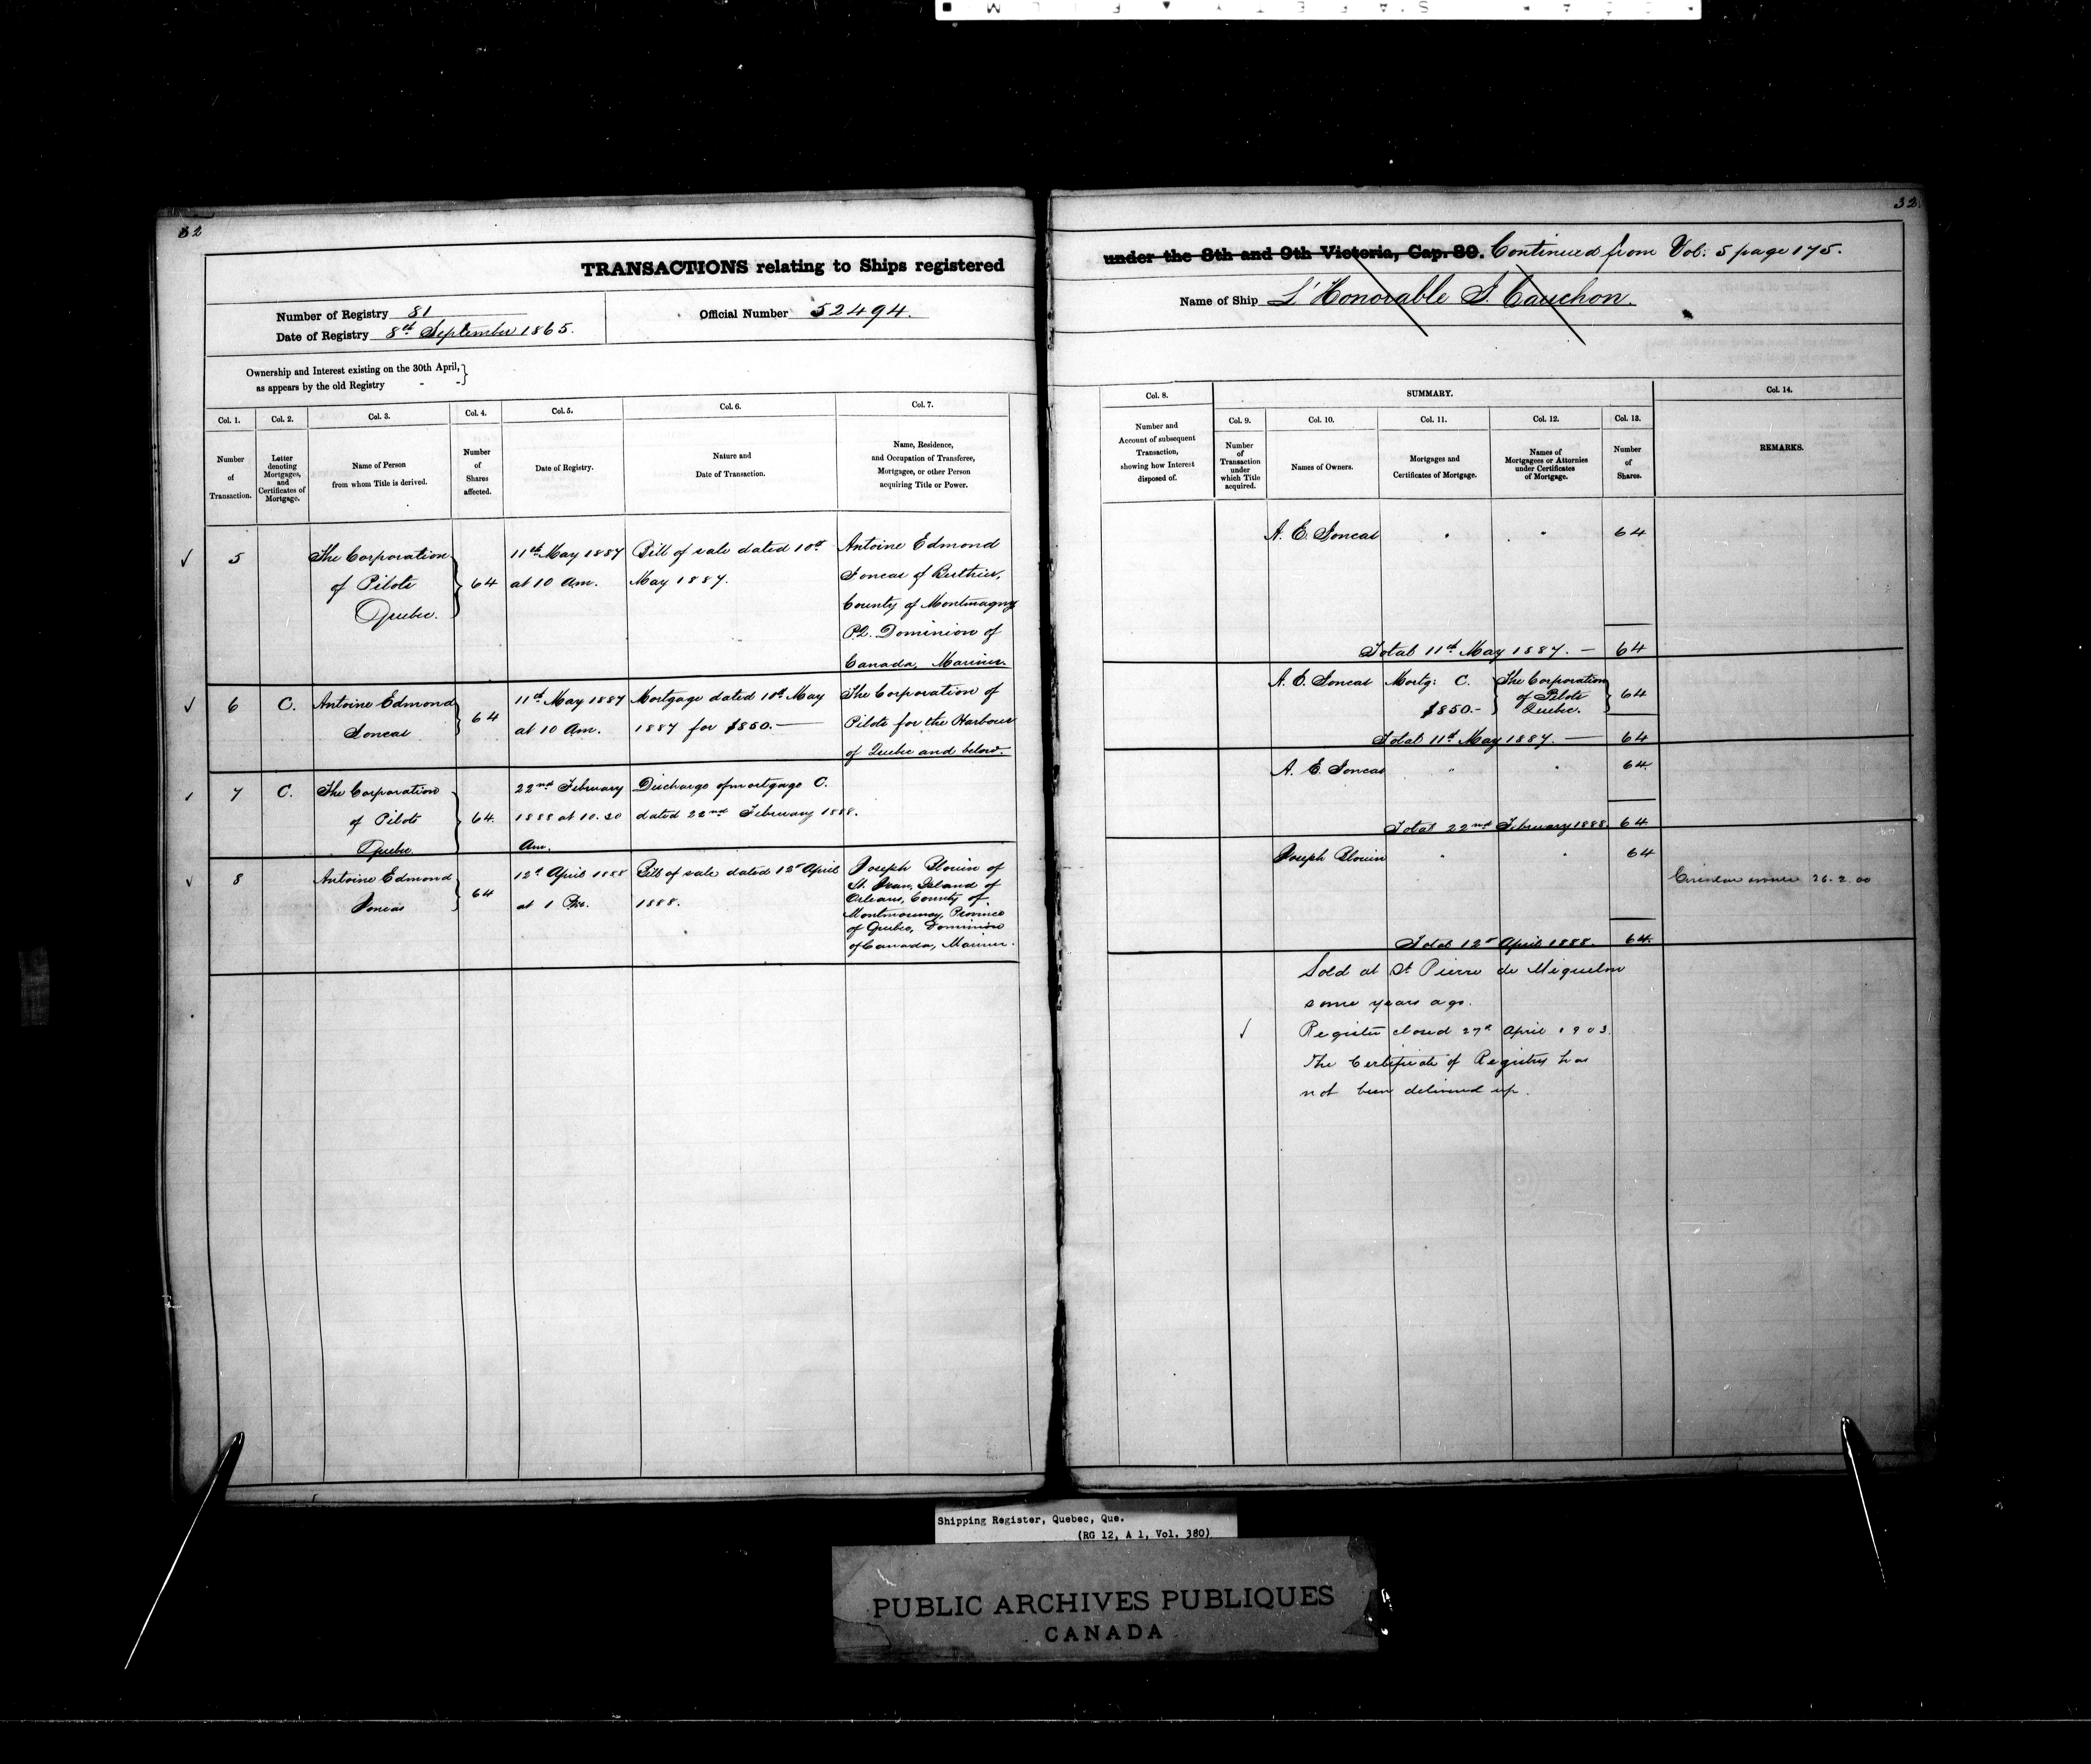 32
32
TRANSACTIONS relating to Ships registered
under the 8th and 9th Victoria, Cap. 89. Continued from Vol: 5 page 175.
Number of Registry 81
Date of Registry 8th September 1865.
Official Number 52494.
Name of Ship L'Honorable J. Cauchon.
Ownership and Interest existing on the 30th April,
as appears by the old Registry - -
Col. 1.
Number
of
Transaction.
Col. 2.
Letter
denoting
Mortgages,
and
Certificates of
Mortgage.
Col. 3.
Name of Person
from whom Title is derived.
Col. 4.
Number
of
Shares
affected.
Col. 5.
Date of Registry.
Col. 6.
Nature and
Date of Transaction.
Col. 7.
Name, Residence,
and Occupation of Transferee,
Mortgagee, or other Person
acquiring Title or Power.
Col. 8.
Number and
Account of subsequent
Transaction,
showing how Interest
disposed of.
SUMMARY.
Col. 9.
Number
of
Transaction
under
which Title
acquired.
Col. 10.
Names of Owners.
Col. 11.
Mortgages and
Certificates of Mortgage.
Col. 12.
Names of
Mortgagees or Attornies
under Certificates
of Mortgage.
Col. 13.
Number
of
Shares.
Col. 14.
REMARKS.
5
The Corporation
of Pilots
Quebec.
64
11th May 1887
at 10 Am.
Bill of sale dated 10th
May 1887.
Antoine Edmond
Joncas of Berthier,
County of Montmagny
P.Q. Dominion of
Canada, Mariner.
A. E. Joncas " " 64
Total 11th May 1887. — 64
6 C.
Antoine Edmond
Joncas
64
11th May 1887
at 10 Am.
Mortgage dated 10th May
1887 for $850.—
The Corporation of
Pilots for the Harbour
of Quebec and below.
A. E. Joncas Mortg: C.
$850.-
The Corporation
of Pilots
Quebec.
64
Total 11th May 1887. — 64
7 C.
The Corporation
of Pilots
Quebec
64.
22nd February
1888 at 10.30
Am.
Discharge of mortgage C.
dated 22nd February 1888.
A. E. Joncas " " 64.
Total 22nd February 1888. 64
8
Antoine Edmond
Joncas
64
12th April 1888
at 1 Pm.
Bill of sale dated 12th April
1888.
Joseph Blouin of
St. Jean, Island of
Orleans, County of
Montmorency, Province
of Quebec, Dominion
of Canada, Mariner.
Joseph Blouin " " 64
26.2.00
Total 12th April 1888. 64.
Sold at St Pierre de Miquelon
some years ago.
Register closed 27th April 1903.
The Certificate of Registry has
not been delivered up.
Shipping Register, Quebec, Que.
(RG 12, A 1, Vol. 380)
PUBLIC ARCHIVES PUBLIQUES
CANADA